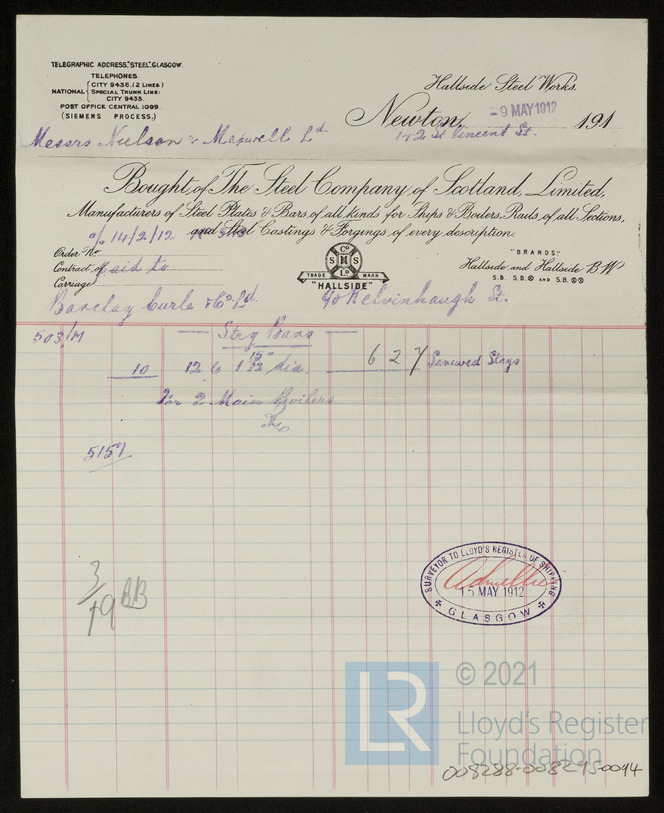 TELEGRAPHIC ADDRESS, "STEEL", GLASGOW.
TELEPHONES
NATIONAL { CITY 9436. (2 LINES)
SPECIAL TRUNK LINE:
CITY 9435.
POST OFFICE CENTRAL 1099.
(SIEMENS PROCESS.)
Hallside Steel Works.
Newton, - 9 MAY 1912 191
Messrs Neilson & Maxwell Ld
172 St Vincent St.
Bought of The Steel Company of Scotland, Limited,
Manufacturers of Steel Plates & Bars of all kinds for Ships & Boilers, Rails of all Sections,
and Steel Castings & Forgings of every description.
o/ 14/2/12
Order No
Contract of
Carriage paid to
S Co H S Ld
TRADE MARK
"HALLSIDE"
"BRANDS"
Hallside and Hallside B W
S.B. S.B.⊗ AND S.B.⊗⊗
Barclay Curle & Co Ld. Kelvinhaugh St.
503/M Stay Bars
10 12 to 1 15/32" dia. 627 Screwed Stays
For 2 Main Boilers
5151
3/19 BB
SURVEYOR TO LLOYD'S REGISTER OF SHIPPING
15 MAY 1912
GLASGOW
LR
© 2021
Lloyd's Register
Foundation
008288-008295-0094